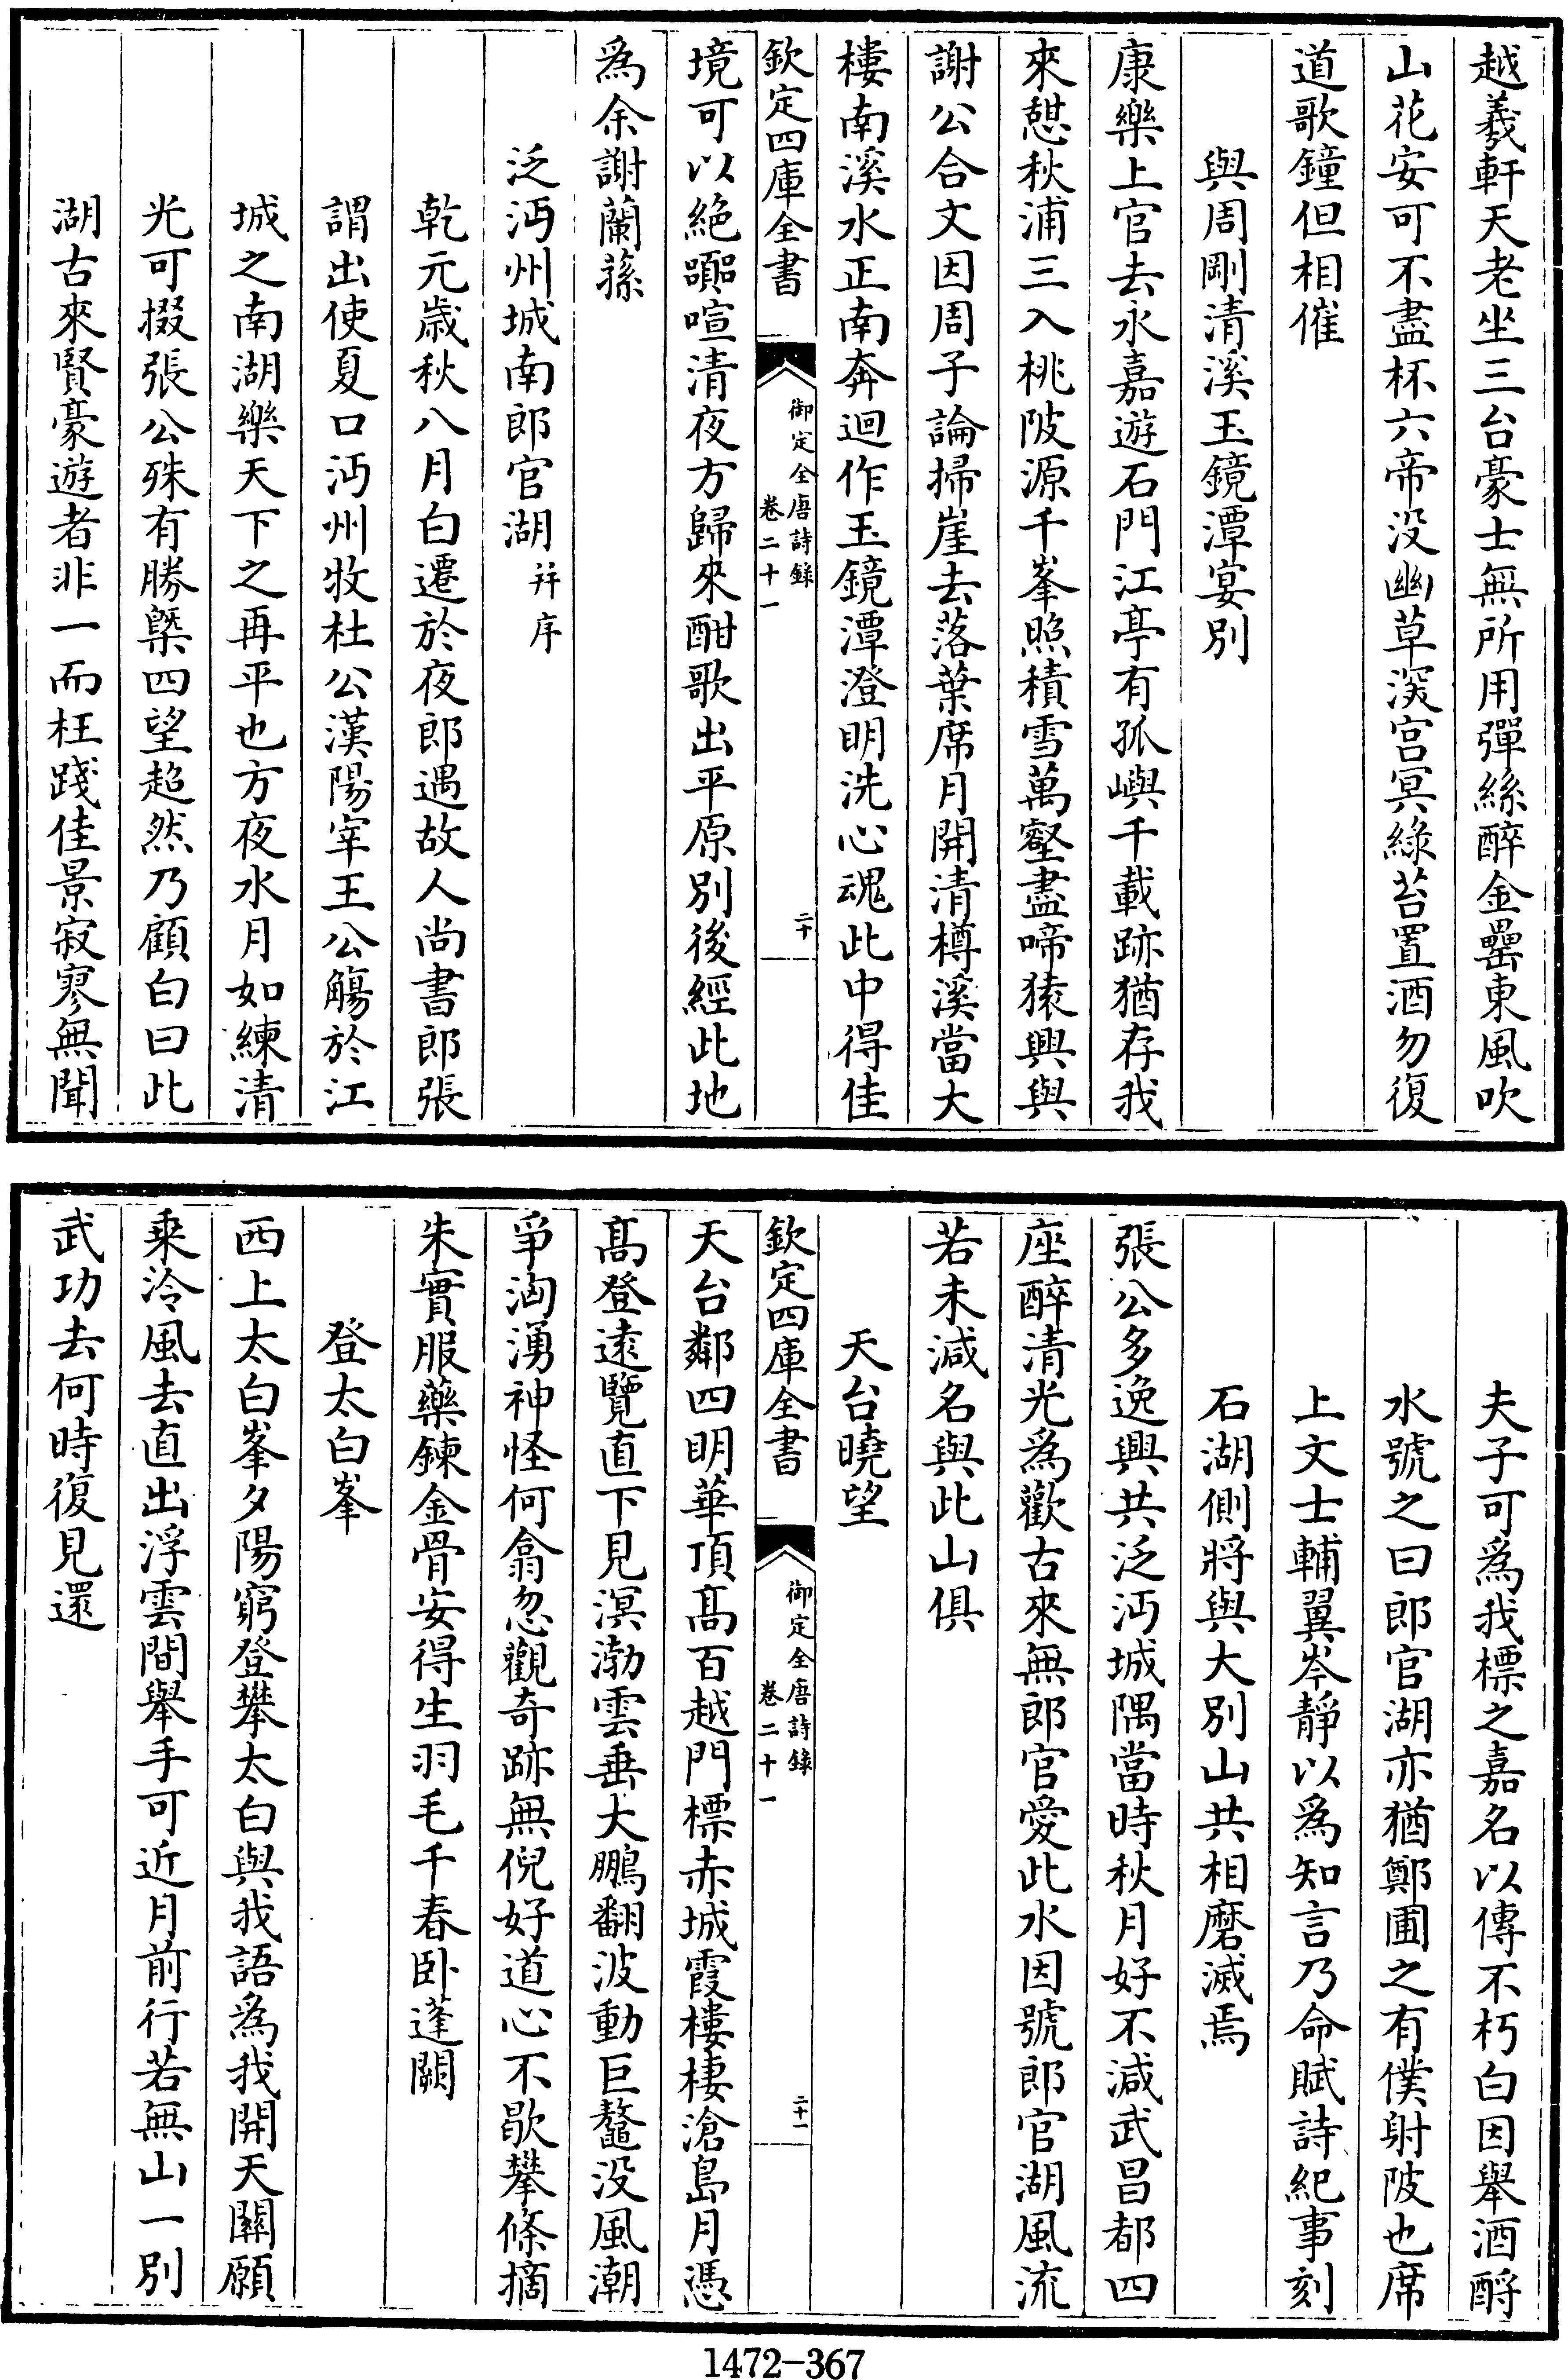 越羲軒天老坐三台豪士無所用彈絲醉金罍東風吹
山花安可不盡杯六帝没幽草深宫冥緑苔置酒勿復
道歌鐘但相催
與周剛清溪玉鏡潭宴别
康樂上官去永嘉遊石門江亭有孤嶼千載跡猶存我
來憇秋浦三入桃陂源千峯照積雪萬壑盡啼猿興與
謝公合文因周子論掃崖去落葉席月開清樽溪當大
樓南溪水正南奔迴作玉鏡潭澄明洗心魂此中得佳
欽定四庫全書
御定全唐詩録
卷二十一
二十
境可以絶嚻喧清夜方歸來酣歌出平原别後經此地
為余謝蘭蓀
泛沔州城南郎官湖并序
乾元歲秋八月白遷於夜郎遇故人尚書郎張
謂出使夏口沔州牧杜公漢陽宰王公觴於江
城之南湖樂天下之再平也方夜水月如練清
光可掇張公殊有勝槩四望超然乃顧白曰此
湖古來賢豪遊者非一而枉踐佳景寂寥無聞
夫子可為我標之嘉名以傳不朽白因舉酒酹
水號之曰郎官湖亦猶鄭圃之有僕射陂也席
上文士輔翼岑靜以為知言乃命賦詩紀事刻
石湖側將與大别山共相磨滅焉
張公多逸興共泛沔城隅當時秋月好不減武昌都四
座醉清光為歡古來無郎官愛此水因號郎官湖風流
若未減名與此山俱
天台曉望
欽定四庫全書
御定全唐詩録
卷二十一
二十一
天台鄰四明華頂髙百越門標赤城霞樓棲滄島月憑
髙登逺覽直下見溟渤雲垂大鵬翻波動巨鼇没風潮
爭洶湧神怪何翕忽觀奇跡無倪好道心不歇攀條摘
朱實服藥鍊金骨安得生羽毛千春卧蓬闕
登太白峯
西上太白峯夕陽窮登攀太白與我語為我開天關願
乘泠風去直出浮雲間舉手可近月前行若無山一别
武功去何時復見還
1472-367